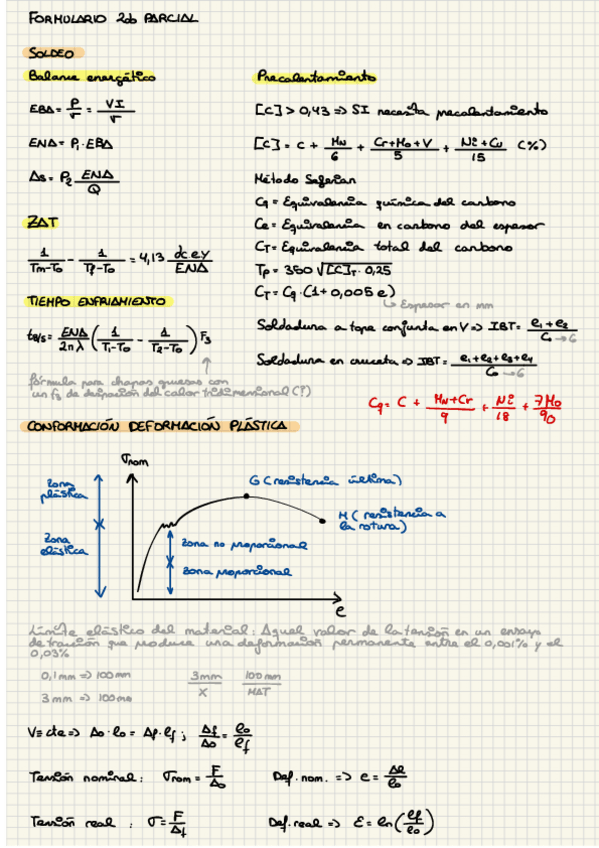 FORMULARIO 2ob PARCIAL
SOLDEO
Balance energético
EBA = P/v = VI/v
ENA = P₁ · EBA
As = P₂ ENA/Q
ZAT
1/(Tm-To) - 1/(Tp-To) = 4,13 dcey/ENA
TIEMPO ENFRIAMIENTO
t8/5 = ENA/2πλ (1/(T₁-To) - 1/(T₂-To)) F₃
fórmula para chapas gruesas con
un f₃ de disipación del calor tridimensional (?)
Precalentamiento
[C] > 0,43 => SI necesita precalentamiento
[C] = C + MN/6 + (Cr+Mo+V)/5 + (Ni+Cu)/15 (%)
Método Seferian
Cq = Equivalencia química del carbono
Ce = Equivalencia en carbono del espesor
CT = Equivalencia total del carbono
Tp = 350 √([C]T · 0,25)
CT = Cq · (1 + 0,005 e)
↳ Espesor en mm
Soldadura a tope conjunta en V => IBT = (e₁+e₂)/6 → 6
Soldadura en cruceta => IBT = (e₁+e₂+e₃+e₄)/6 → 6
Cq = C + (MN+Cr)/9 + Ni/18 + 7Mo/90
CONFORMACIÓN DEFORMACIÓN PLÁSTICA
σnom
zona plástica
zona elástica
G (resistencia última)
M (resistencia a
la rotura)
zona no proporcional
zona proporcional
e
Límite elástico del material: Aquel valor de la tensión en un ensayo
de tracción que produce una deformación permanente entre el 0,001% y el
0,03%
0,1mm => 100mm
3mm => 100mm
3mm/X 100mm/MAT
V = cte => Ao · lo = Af · lf ; Af/Ao = lo/lf
Tensión nominal : σnom = F/Ao Def. nom. => e = Δl/lo
Tensión real : σ = F/Af Def. real => ε = ln(lf/lo)